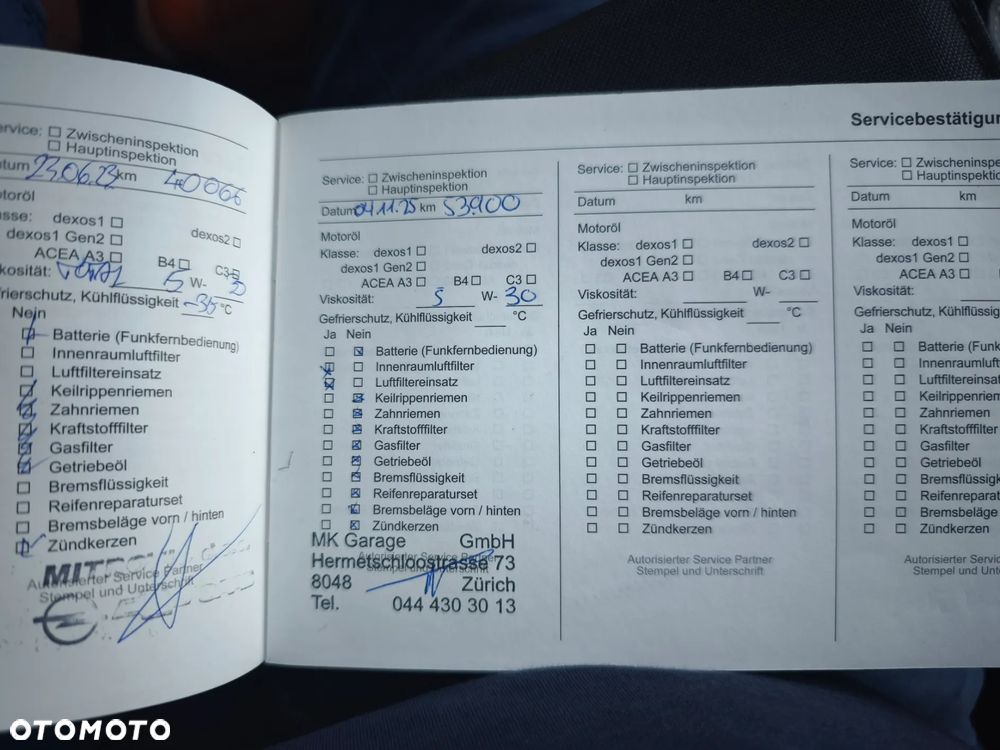 Servicebestätigun
ervice: Zwischeninspektion
Hauptinspektion
atum 23.06.23 km 40066
otoröl
asse: dexos1
dexos2
dexos1 Gen2
ACEA A3 B4 C3
skosität: 5 W- 30
frierschutz, Kühlflüssigkeit -35 °C
Nein
Batterie (Funkfernbedienung)
Innenraumluftfilter
Luftfiltereinsatz
Keilrippenriemen
Zahnriemen
Kraftstofffilter
Gasfilter
Getriebeöl
Bremsflüssigkeit
Reifenreparaturset
Bremsbeläge vorn / hinten
Zündkerzen
Autorisierter Service Partner
Stempel und Unterschrift
Service: Zwischeninspektion
Hauptinspektion
Datum 04.11.25 km 53900
Motoröl
Klasse: dexos1 dexos2
dexos1 Gen2
ACEA A3 B4 C3
Viskosität: 5 W- 30
Gefrierschutz, Kühlflüssigkeit °C
Ja Nein
Batterie (Funkfernbedienung)
Innenraumluftfilter
Luftfiltereinsatz
Keilrippenriemen
Zahnriemen
Kraftstofffilter
Gasfilter
Getriebeöl
Bremsflüssigkeit
Reifenreparaturset
Bremsbeläge vorn / hinten
Zündkerzen
MK Garage GmbH
Autorisierter Service Partner
Hermetschloostrasse 73
Stempel und Unterschrift
8048 Zürich
Tel. 044 430 30 13
Service: Zwischeninspektion
Hauptinspektion
Datum km
Motoröl
Klasse: dexos1 dexos2
dexos1 Gen2
ACEA A3 B4 C3
Viskosität: W-
Gefrierschutz, Kühlflüssigkeit °C
Ja Nein
Batterie (Funkfernbedienung)
Innenraumluftfilter
Luftfiltereinsatz
Keilrippenriemen
Zahnriemen
Kraftstofffilter
Gasfilter
Getriebeöl
Bremsflüssigkeit
Reifenreparaturset
Bremsbeläge vorn / hinten
Zündkerzen
Autorisierter Service Partner
Stempel und Unterschrift
Service: Zwischeninspe
Hauptinspekti
Datum km
Motoröl
Klasse: dexos1
dexos1 Gen2
ACEA A3
Viskosität:
Gefrierschutz, Kühlflüssi
Ja Nein
Batterie (Funkf
Innenraumluftf
Luftfiltereinsat
Keilrippenriem
Zahnriemen
Kraftstofffilter
Gasfilter
Getriebeöl
Bremsflüssigk
Reifenreparatu
Bremsbeläge v
Zündkerzen
Autorisierter Ser
Stempel und Un
OTOMOTO